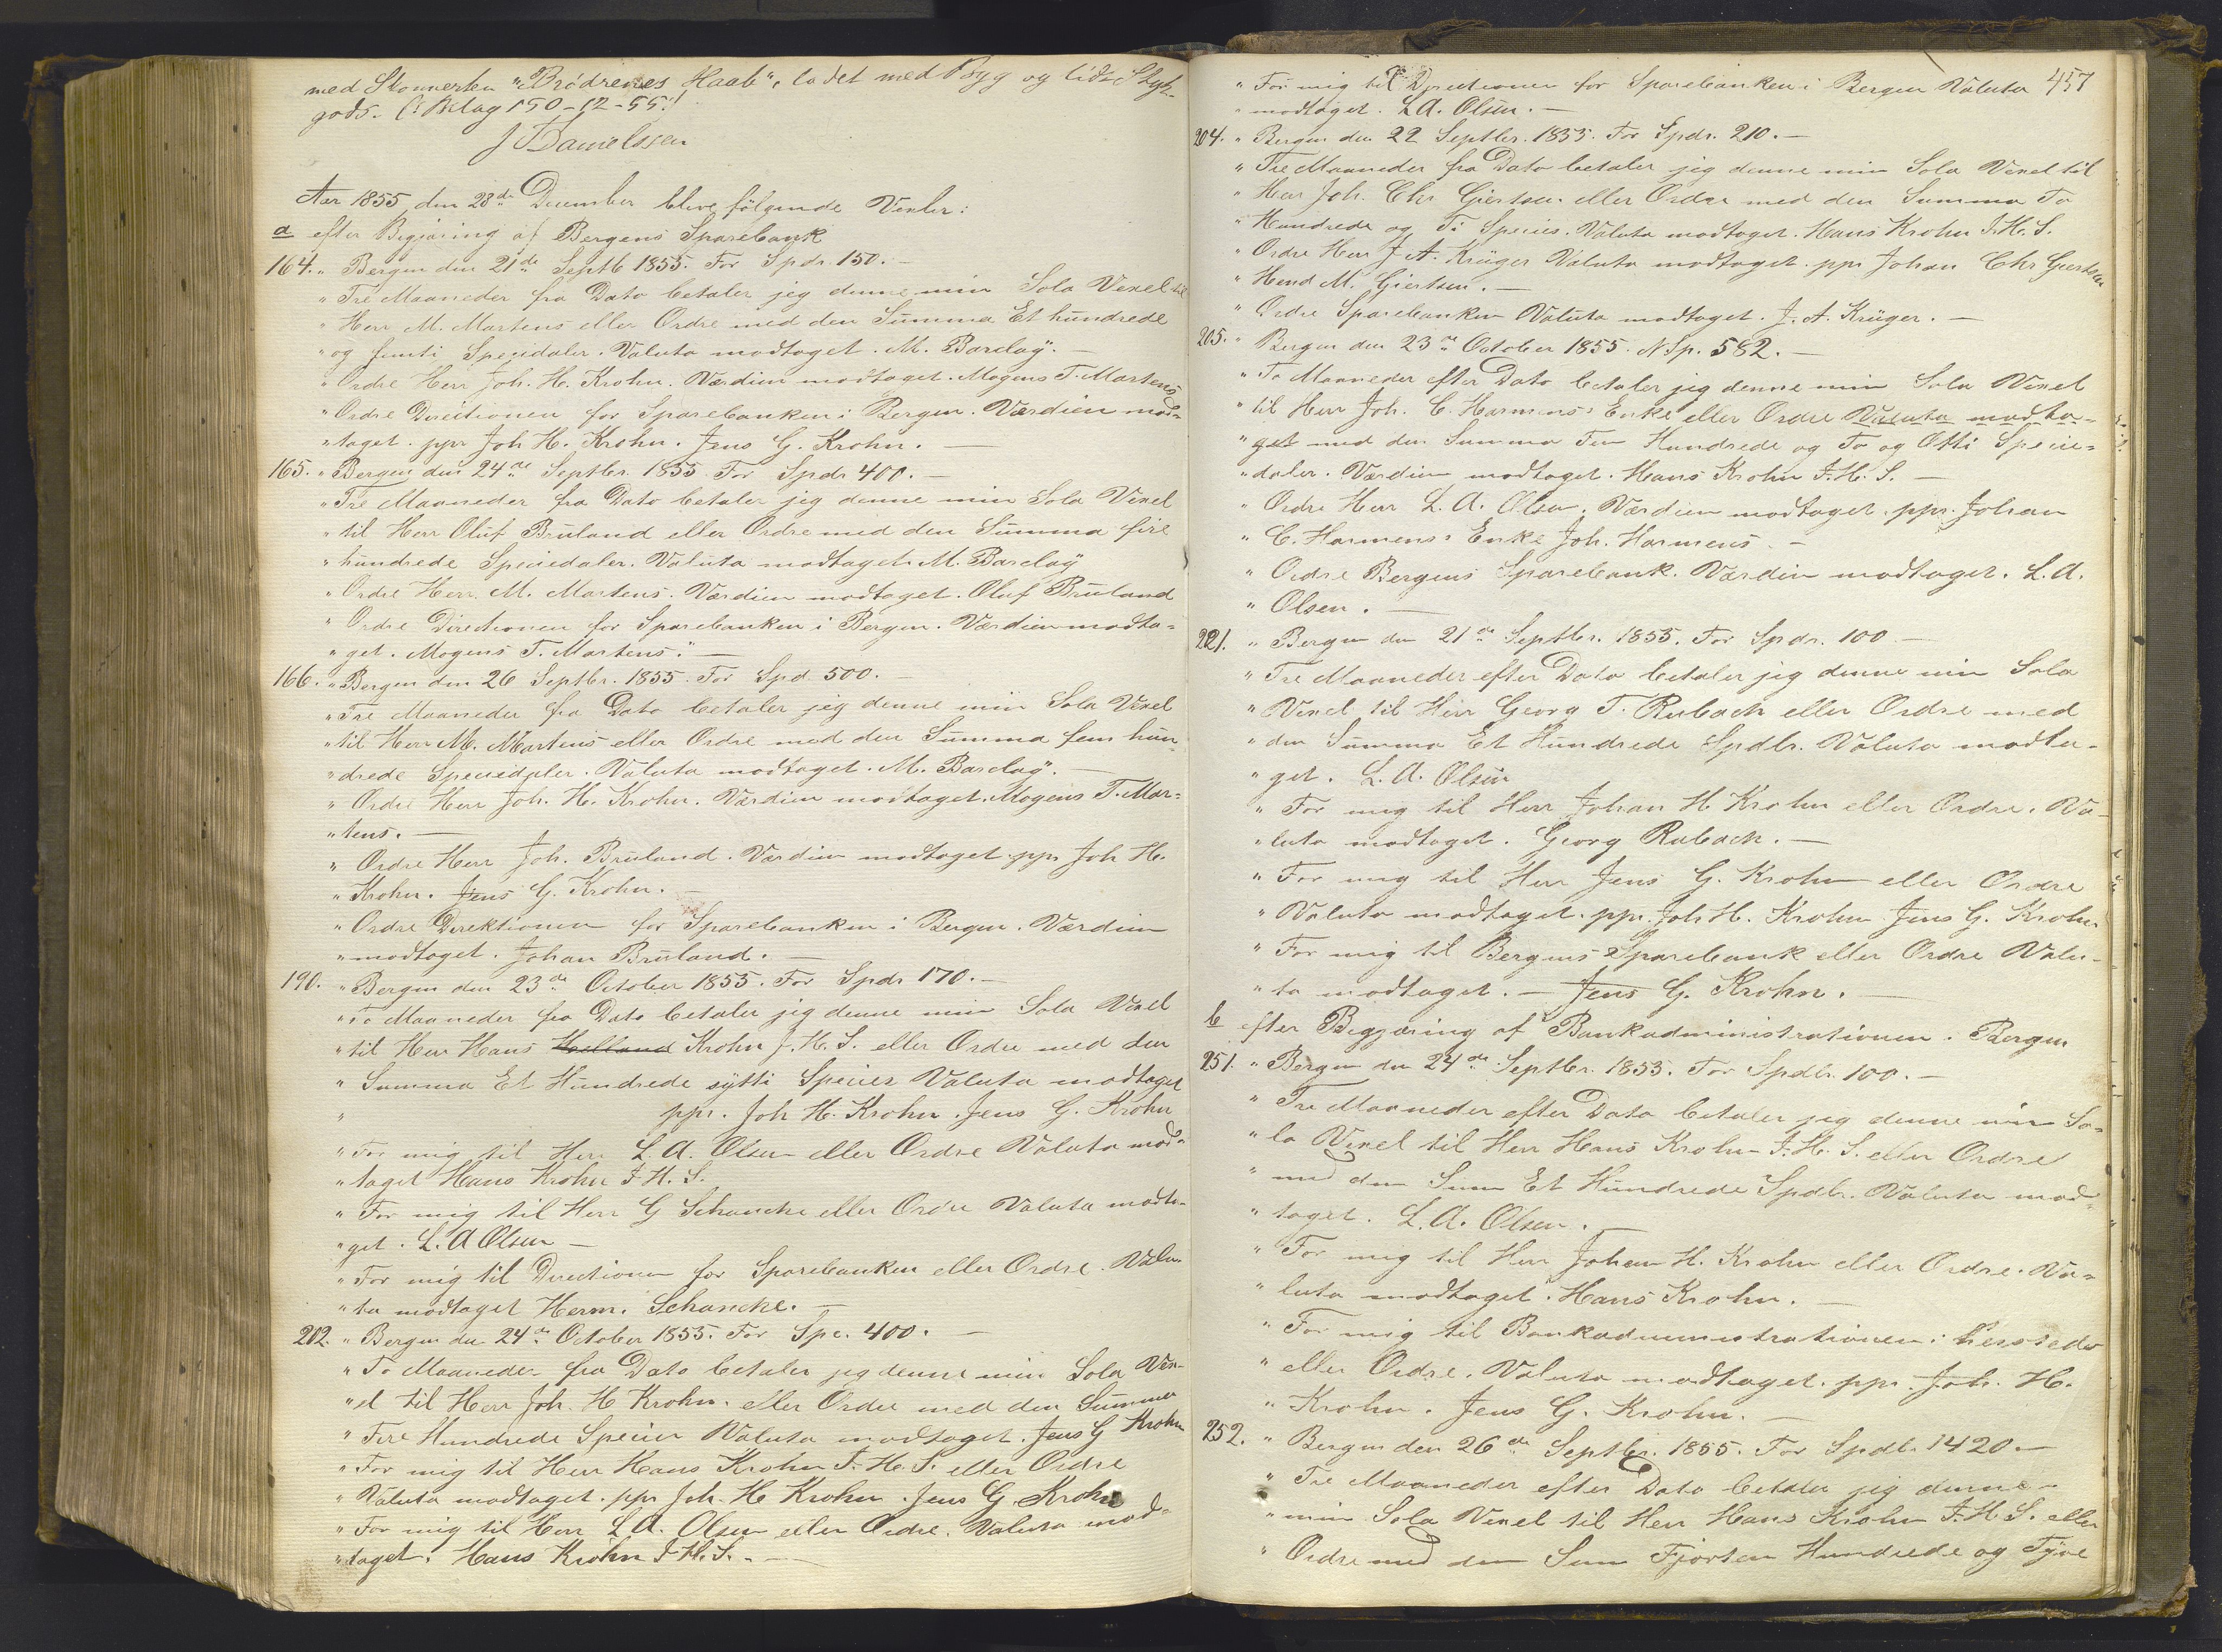 med Skonnerten "Brödrenes Haab", ladet med Byg og lidt Styk-
gods. (: Bilag 150-12-55!
J Danielssen
Aar 1855 den 28de December bleve fölgende Vexler:
a efter Begjæring af Bergens Sparebank
164. " Bergen den 21de Septb 1855. For Spdr. 150. –
" Tre Maaneder fra Dato betaler jeg denne min Sola Vexel til
" Herr M. Martens eller Ordre med den Summa Et hundrede
" og femti Speciedaler. Valuta modtaget. M. Barclay. –
" Ordre Herr Joh. H. Krohn. Værdien modtaget. Mogens T. Martens
" Ordre Directionen for Sparebanken i Bergen. Værdien mod=
" taget. ppr Joh H. Krohn. Jens G. Krohn. –
165. " Bergen den 24de Septbr. 1855 For Spdr 400. –
" Tre Maaneder fra Dato betaler jeg denne min Sola Vexel
" til Herr Oluf Bruland eller Ordre med den Summa fire
" hundrede Speciedaler. Valuta modtaget. M. Barclay
" Ordre Herr M. Martens. Værdien modtaget. Oluf Bruland
" Ordre Directionen for Sparebanken i Bergen. Værdien modta=
" get. Mogens T. Martens." –
166. " Bergen den 26 Septbr. 1855. For Spd. 500. –
" Tre Maaneder fra Dato betaler jeg denne min Sola Vexel
" til Herr M. Martens eller Ordre med den Summa fem hun=
" drede Speciedaler. Valuta modtaget. M. Barclay. –
" Ordre Herr Joh. H. Krohn. Værdien modtaget. Mogens T. Mar=
" tens. –
" Ordre Herr Joh. Bruland. Værdien modtaget ppr Joh H.
" Krohn. Jens G. Krohn. –
" Ordre Direktionen for Sparebanken i Bergen. Værdien
" modtaget. Johan Bruland. –
190. " Bergen den 23de October 1855. For Spdr 170. –
" To Maaneder fra Dato betaler jeg denne min Sola Vexel
" til Herr Hans Helland Krohn J. H. S. eller Ordre med den
" Summa Et Hundrede sytti Species Valuta modtaget
" ppr. Joh H. Krohn. Jens G. Krohn
" For mig til Herr L. A. Olsen eller Ordre Valuta mod=
" taget Hans Krohn J. H. S.
" For mig til Herr G Schancke eller Ordre Valuta modta=
" get. L. A Olsen –
" For mig til Directionen for Sparebanken eller Ordre. Valu=
" ta modtaget Herm. Schancke. –
202. " Bergen den 24de October 1855. For Spc. 400. –
" To Maaneder fra Dato betaler jeg denne min Sola Vex-
" el til Herr Joh. H Krohn. eller Ordre med den Summa
" Fire Hundrede Specier Valuta modtaget. Jens G Krohn
" For mig til Herr Hans Krohn J. H. S. eller Ordre
" Valuta modtaget. ppr Joh. H Krohn. Jens G. Krohn
" For mig til Herr L A. Olsen eller Ordre. Valuta mod=
" taget. Hans Krohn J. H. S. –
457
" For mig til Directionen for Sparebanken i Bergen Valuta
" modtaget. L A. Olsen. –
204. " Bergen den 22 Septbr. 1855. For Spdr. 210. –
" Tre Maaneder fra Dato betaler jeg denne min Sola Vexel til
" Herr Joh. Chr Giertsen eller Ordre med den Summa To
" Hundrede og Ti Species. Valuta modtaget. Hans Krohn J. H. S.
" Ordre Herr J A. Krüger Valuta modtaget. ppr Johan Chr Giertsen
" Hend M. Giertsen. –
" Ordre Sparebanken Valuta modtaget. J. A. Krüger. –
205. " Bergen den 23de October 1855. N Sp. 582. –
" To Maaneder efter Dato betaler jeg denne min Sola Vexel
" til Herr Joh. C. Harmens's Enke eller Ordre Valuta modta=
" get med den Summa Fem Hundrede og To og Otti Specie=
" daler. Værdien modtaget. Hans Krohn J. H. S. –
" Ordre Herr L. A. Olsen. Værdien modtaget. ppr. Johan
" C. Harmens's Enke Joh. Harmens. –
" Ordre Bergens Sparebank. Værdien modtaget. L. A.
" Olsen. –
221. " Bergen den 21de Septbr. 1855. For Spdr. 100 –
" Tre Maaneder efter Dato betaler jeg denne min Sola
" Vexel til Herr Georg T. Rubach eller Ordre med
" den Summa Et Hundrede Spdlr. Valuta modta-
" get. L. A. Olsen
" For mig til Herr Johan H Krohn eller Ordre. Va-
" luta modtaget. Georg Rubach. –
" For mig til Herr Jens G. Krohn eller Ordre
" Valuta modtaget. ppr. Joh H. Krohn Jens G. Krohn
" For mig til Bergens Sparebank eller Ordre Valu-
" ta modtaget. – Jens G. Krohn. –
b efter Begjæring af Bankadministrationen. Bergen
251. " Bergen den 24de Septbr. 1855. For Spdlr. 100. –
" Tre Maaneder efter Dato betaler jeg denne min So=
" la Vexel til Herr Hans Krohn J. H. S. eller Ordre
" med den Sum Et Hundrede Spdlr. Valuta mod=
" taget. L. A. Olsen. –
" For mig til Herr Johan H. Krohn eller Ordre. Va=
" luta modtaget. Hans Krohn. –
" For mig til Bankadministrationen i hersteder
" eller Ordre. Valuta modtaget. ppr. Joh. H.
" Krohn. Jens G. Krohn. –
252. " Bergen den 26de Septbr. 1855. For Spdlr. 1420. –
" Tre Maaneder efter Dato betaler jeg denne –
" min Sola Vexel til Herr Hans Krohn J. H. S. eller
" Ordre med den Sum Fjorten Hundrede og Tyve